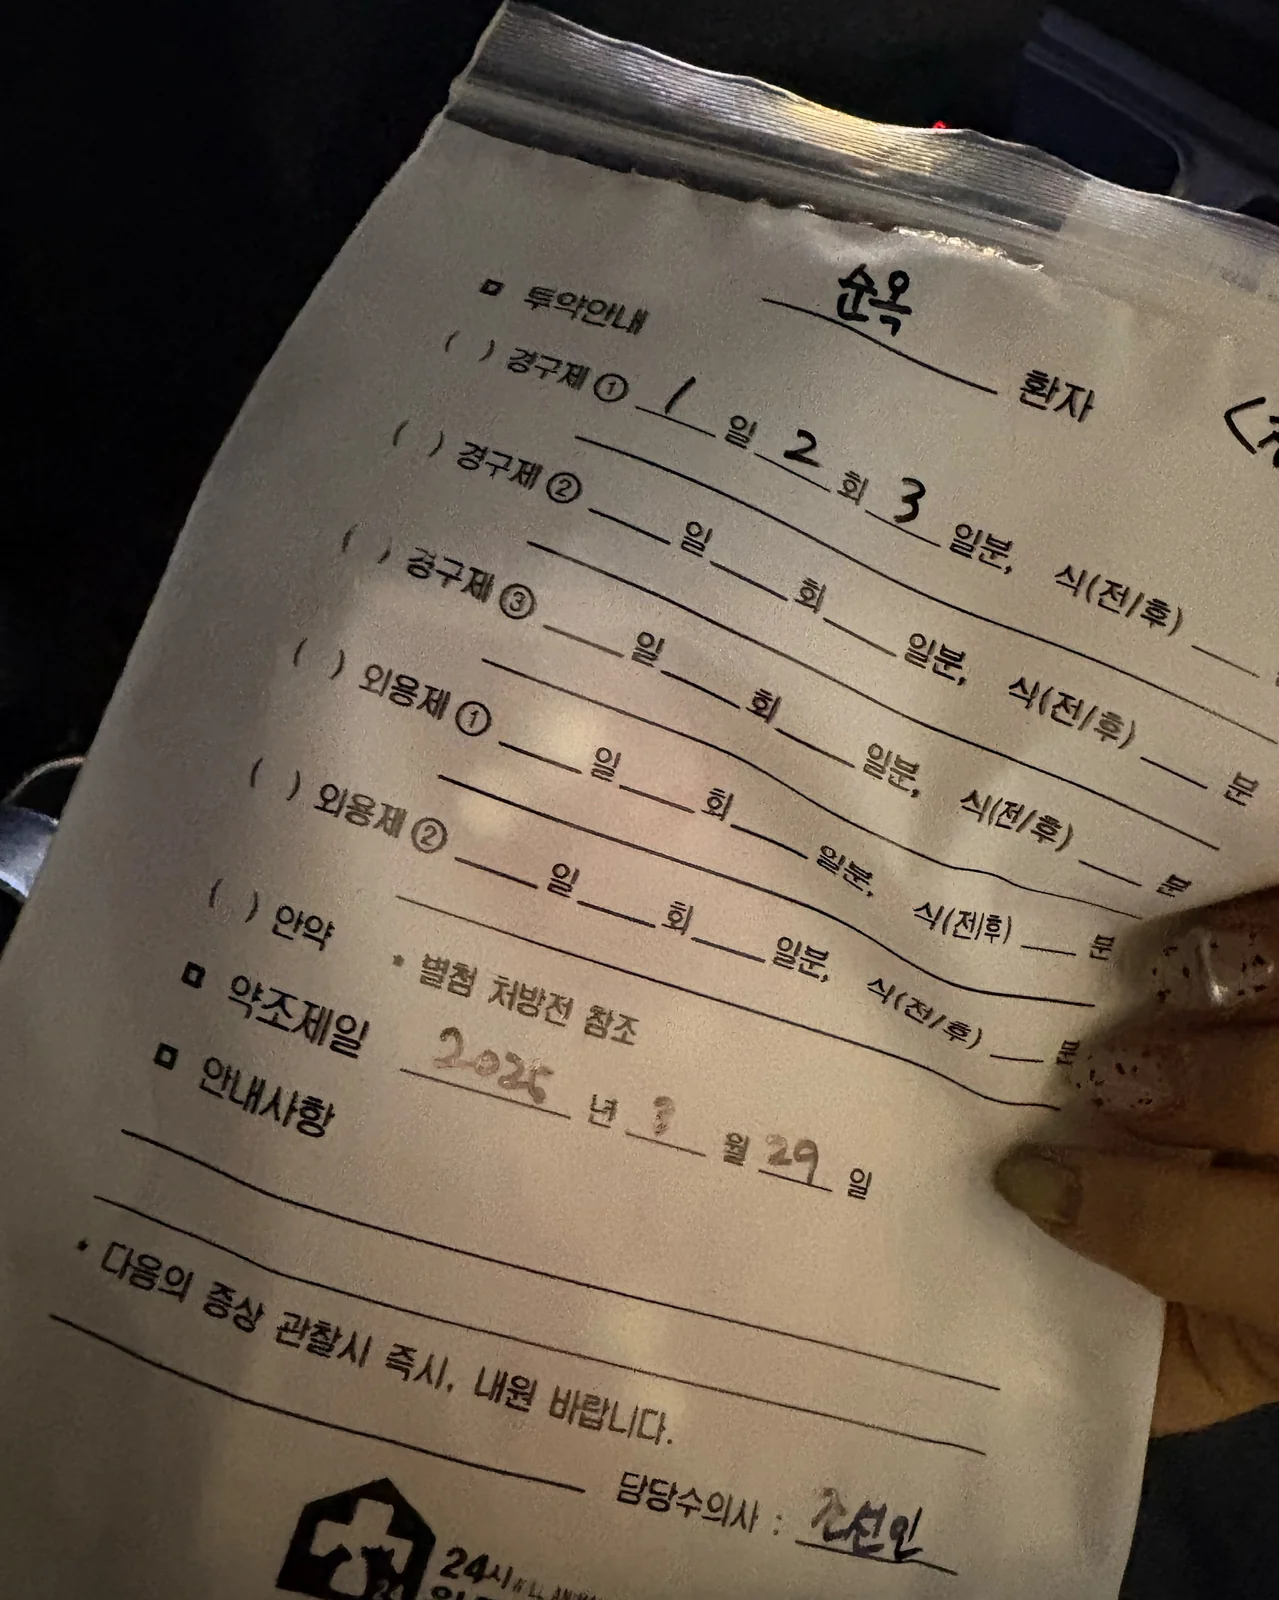 순옥 환자
▫ 투약안내
( ) 경구제 ① 1 일 2 회 3 일분, 식(전/후)
( ) 경구제 ② 일 회 일분, 식(전/후) 분
( ) 경구제 ③ 일 회 일분, 식(전/후) 분
( ) 외용제 ① 일 회 일분, 식(전/후) 분
( ) 외용제 ② 일 회 일분, 식(전/후) 분
( ) 안약 * 별첨 처방전 참조
▫ 약조제일 2025 년 월 29 일
▫ 안내사항
* 다음의 증상 관찰시 즉시, 내원 바랍니다.
담당수의사 : 조선인
24시